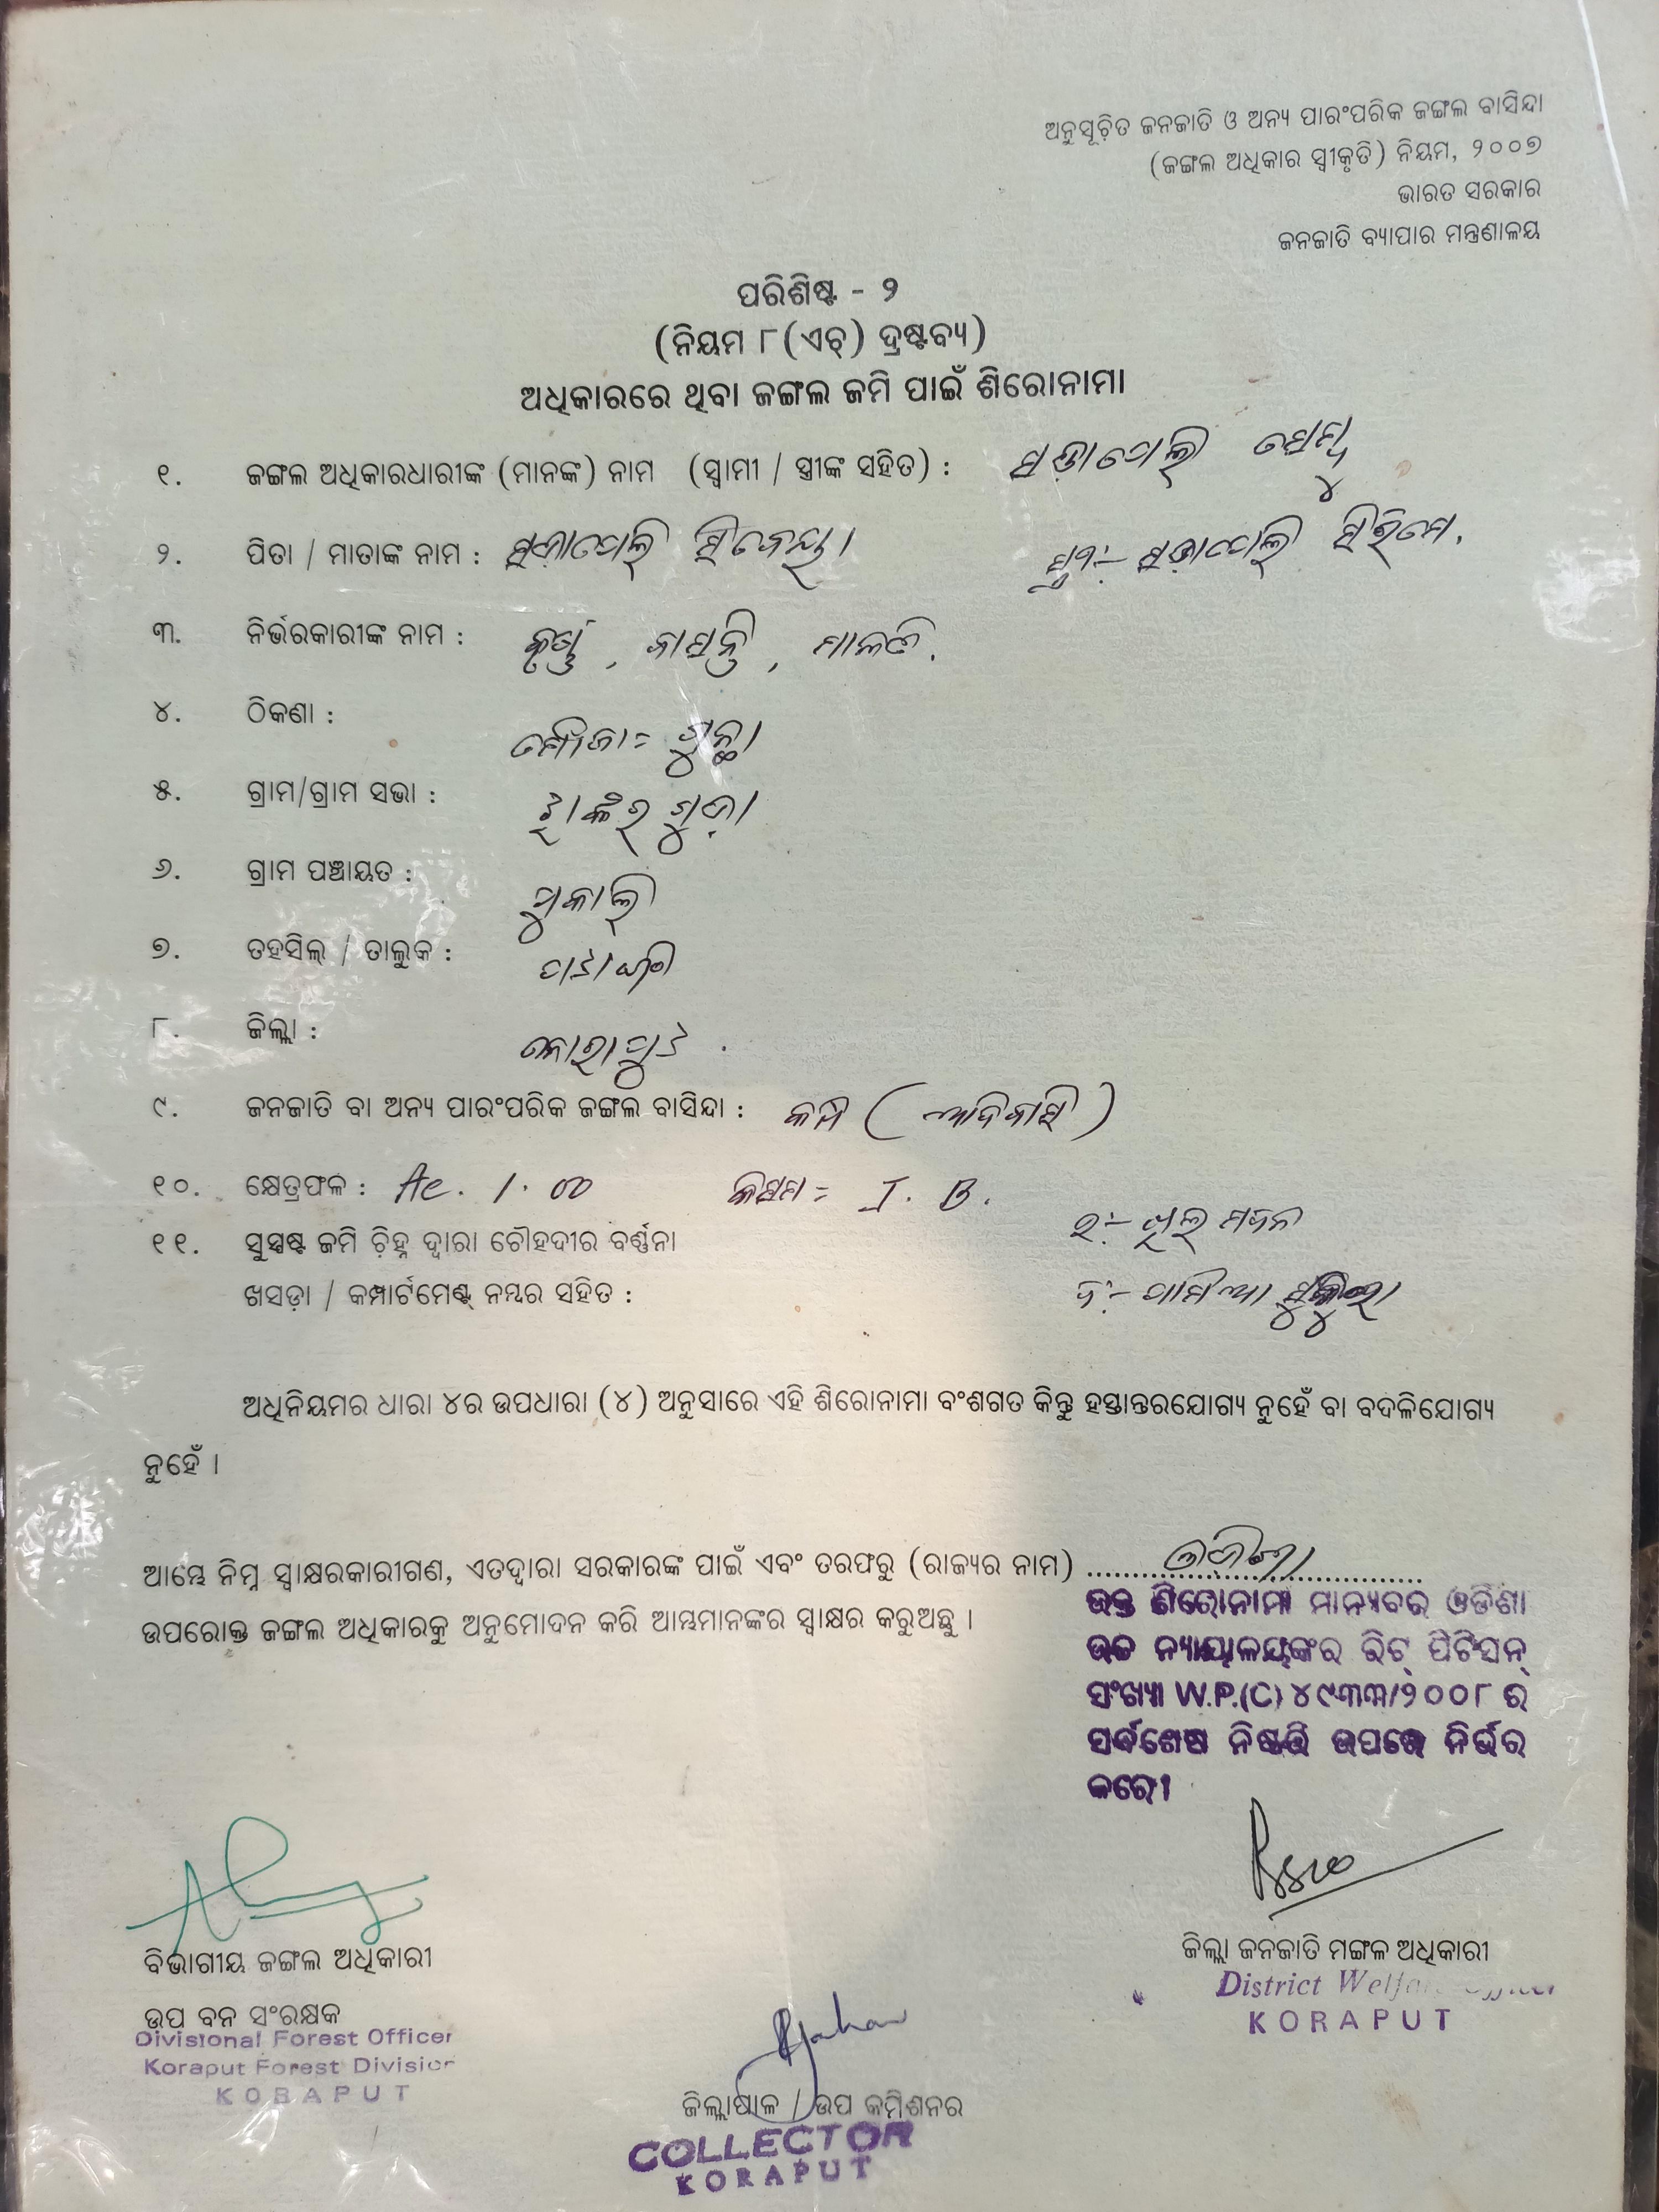 ଅନୁସୂଚିତ ଜନଜାତି ଓ ଅନ୍ୟ ପାରଂପରିକ ଜଙ୍ଗଲ ବାସିନ୍ଦା
(ଜଙ୍ଗଲ ଅଧିକାର ସ୍ୱୀକୃତି) ନିୟମ, ୨୦୦୭
ଭାରତ ସରକାର
ଜନଜାତି ବ୍ୟାପାର ମନ୍ତ୍ରଣାଳୟ
ପରିଶିଷ୍ଟ - ୨
(ନିୟମ ୮(ଏଚ୍) ଦ୍ରଷ୍ଟବ୍ୟ)
ଅଧିକାରରେ ଥିବା ଜଙ୍ଗଲ ଜମି ପାଇଁ ଶିରୋନାମା
୧. ଜଙ୍ଗଲ ଅଧିକାରଧାରୀଙ୍କ (ମାନଙ୍କ) ନାମ (ସ୍ୱାମୀ / ସ୍ତ୍ରୀଙ୍କ ସହିତ) :
୨. ପିତା / ମାତାଙ୍କ ନାମ :
୩. ନିର୍ଭରକାରୀଙ୍କ ନାମ : କୃଷ୍ଣ, ବାସନ୍ତି, ମାଳତି.
୪. ଠିକଣା : ମୌଜା=
୫. ଗ୍ରାମ/ଗ୍ରାମ ସଭା :
୬. ଗ୍ରାମ ପଞ୍ଚାୟତ : ପୁକାଲି
୭. ତହସିଲ୍ / ତାଲୁକ : ପଟାଙ୍ଗି
୮. ଜିଲ୍ଲା : କୋରାପୁଟ.
୯. ଜନଜାତି ବା ଅନ୍ୟ ପାରଂପରିକ ଜଙ୍ଗଲ ବାସିନ୍ଦା : (ଆଦିବାସି)
୧୦. କ୍ଷେତ୍ରଫଳ : Ac. 1.00 କିସମ= J. B.
୧୧. ସୁସ୍ପଷ୍ଟ ଜମି ଚିହ୍ନ ଦ୍ୱାରା ଚୌହଦୀର ବର୍ଣ୍ଣନା
ଖସଡ଼ା / କମ୍ପାର୍ଟମେଣ୍ଟ୍ ନମ୍ବର ସହିତ :
ଅଧିନିୟମର ଧାରା ୪ର ଉପଧାରା (୪) ଅନୁସାରେ ଏହି ଶିରୋନାମା ବଂଶଗତ କିନ୍ତୁ ହସ୍ତାନ୍ତରଯୋଗ୍ୟ ନୁହେଁ ବା ବଦଳିଯୋଗ୍ୟ
ନୁହେଁ ।
ଆମ୍ଭେ ନିମ୍ନ ସ୍ୱାକ୍ଷରକାରୀଗଣ, ଏତଦ୍ୱାରା ସରକାରଙ୍କ ପାଇଁ ଏବଂ ତରଫରୁ (ରାଜ୍ୟର ନାମ) ଓଡ଼ିଶା
ଉପରୋକ୍ତ ଜଙ୍ଗଲ ଅଧିକାରକୁ ଅନୁମୋଦନ କରି ଆମ୍ଭମାନଙ୍କର ସ୍ୱାକ୍ଷର କରୁଅଛୁ ।
ଉକ୍ତ ଶିରୋନାମା ମାନ୍ୟବର ଓଡିଶା
ଉଚ୍ଚ ନ୍ୟାୟାଳୟଙ୍କର ରିଟ୍ ପିଟିସନ୍
ସଂଖ୍ୟା W.P.(C) ୪୯୩୩/୨୦୦୮ ର
ସର୍ବଶେଷ ନିଷ୍ପତ୍ତି ଉପରେ ନିର୍ଭର
କରେ।
ବିଭାଗୀୟ ଜଙ୍ଗଲ ଅଧିକାରୀ
ଉପ ବନ ସଂରକ୍ଷକ
Divisional Forest Officer
Koraput Forest Division
KORAPUT
ଜିଲ୍ଲା ଜନଜାତି ମଙ୍ଗଳ ଅଧିକାରୀ
District Welfare Officer
KORAPUT
ଜିଲ୍ଲାପାଳ / ଉପ କମିଶନର
COLLECTOR
KORAPUT